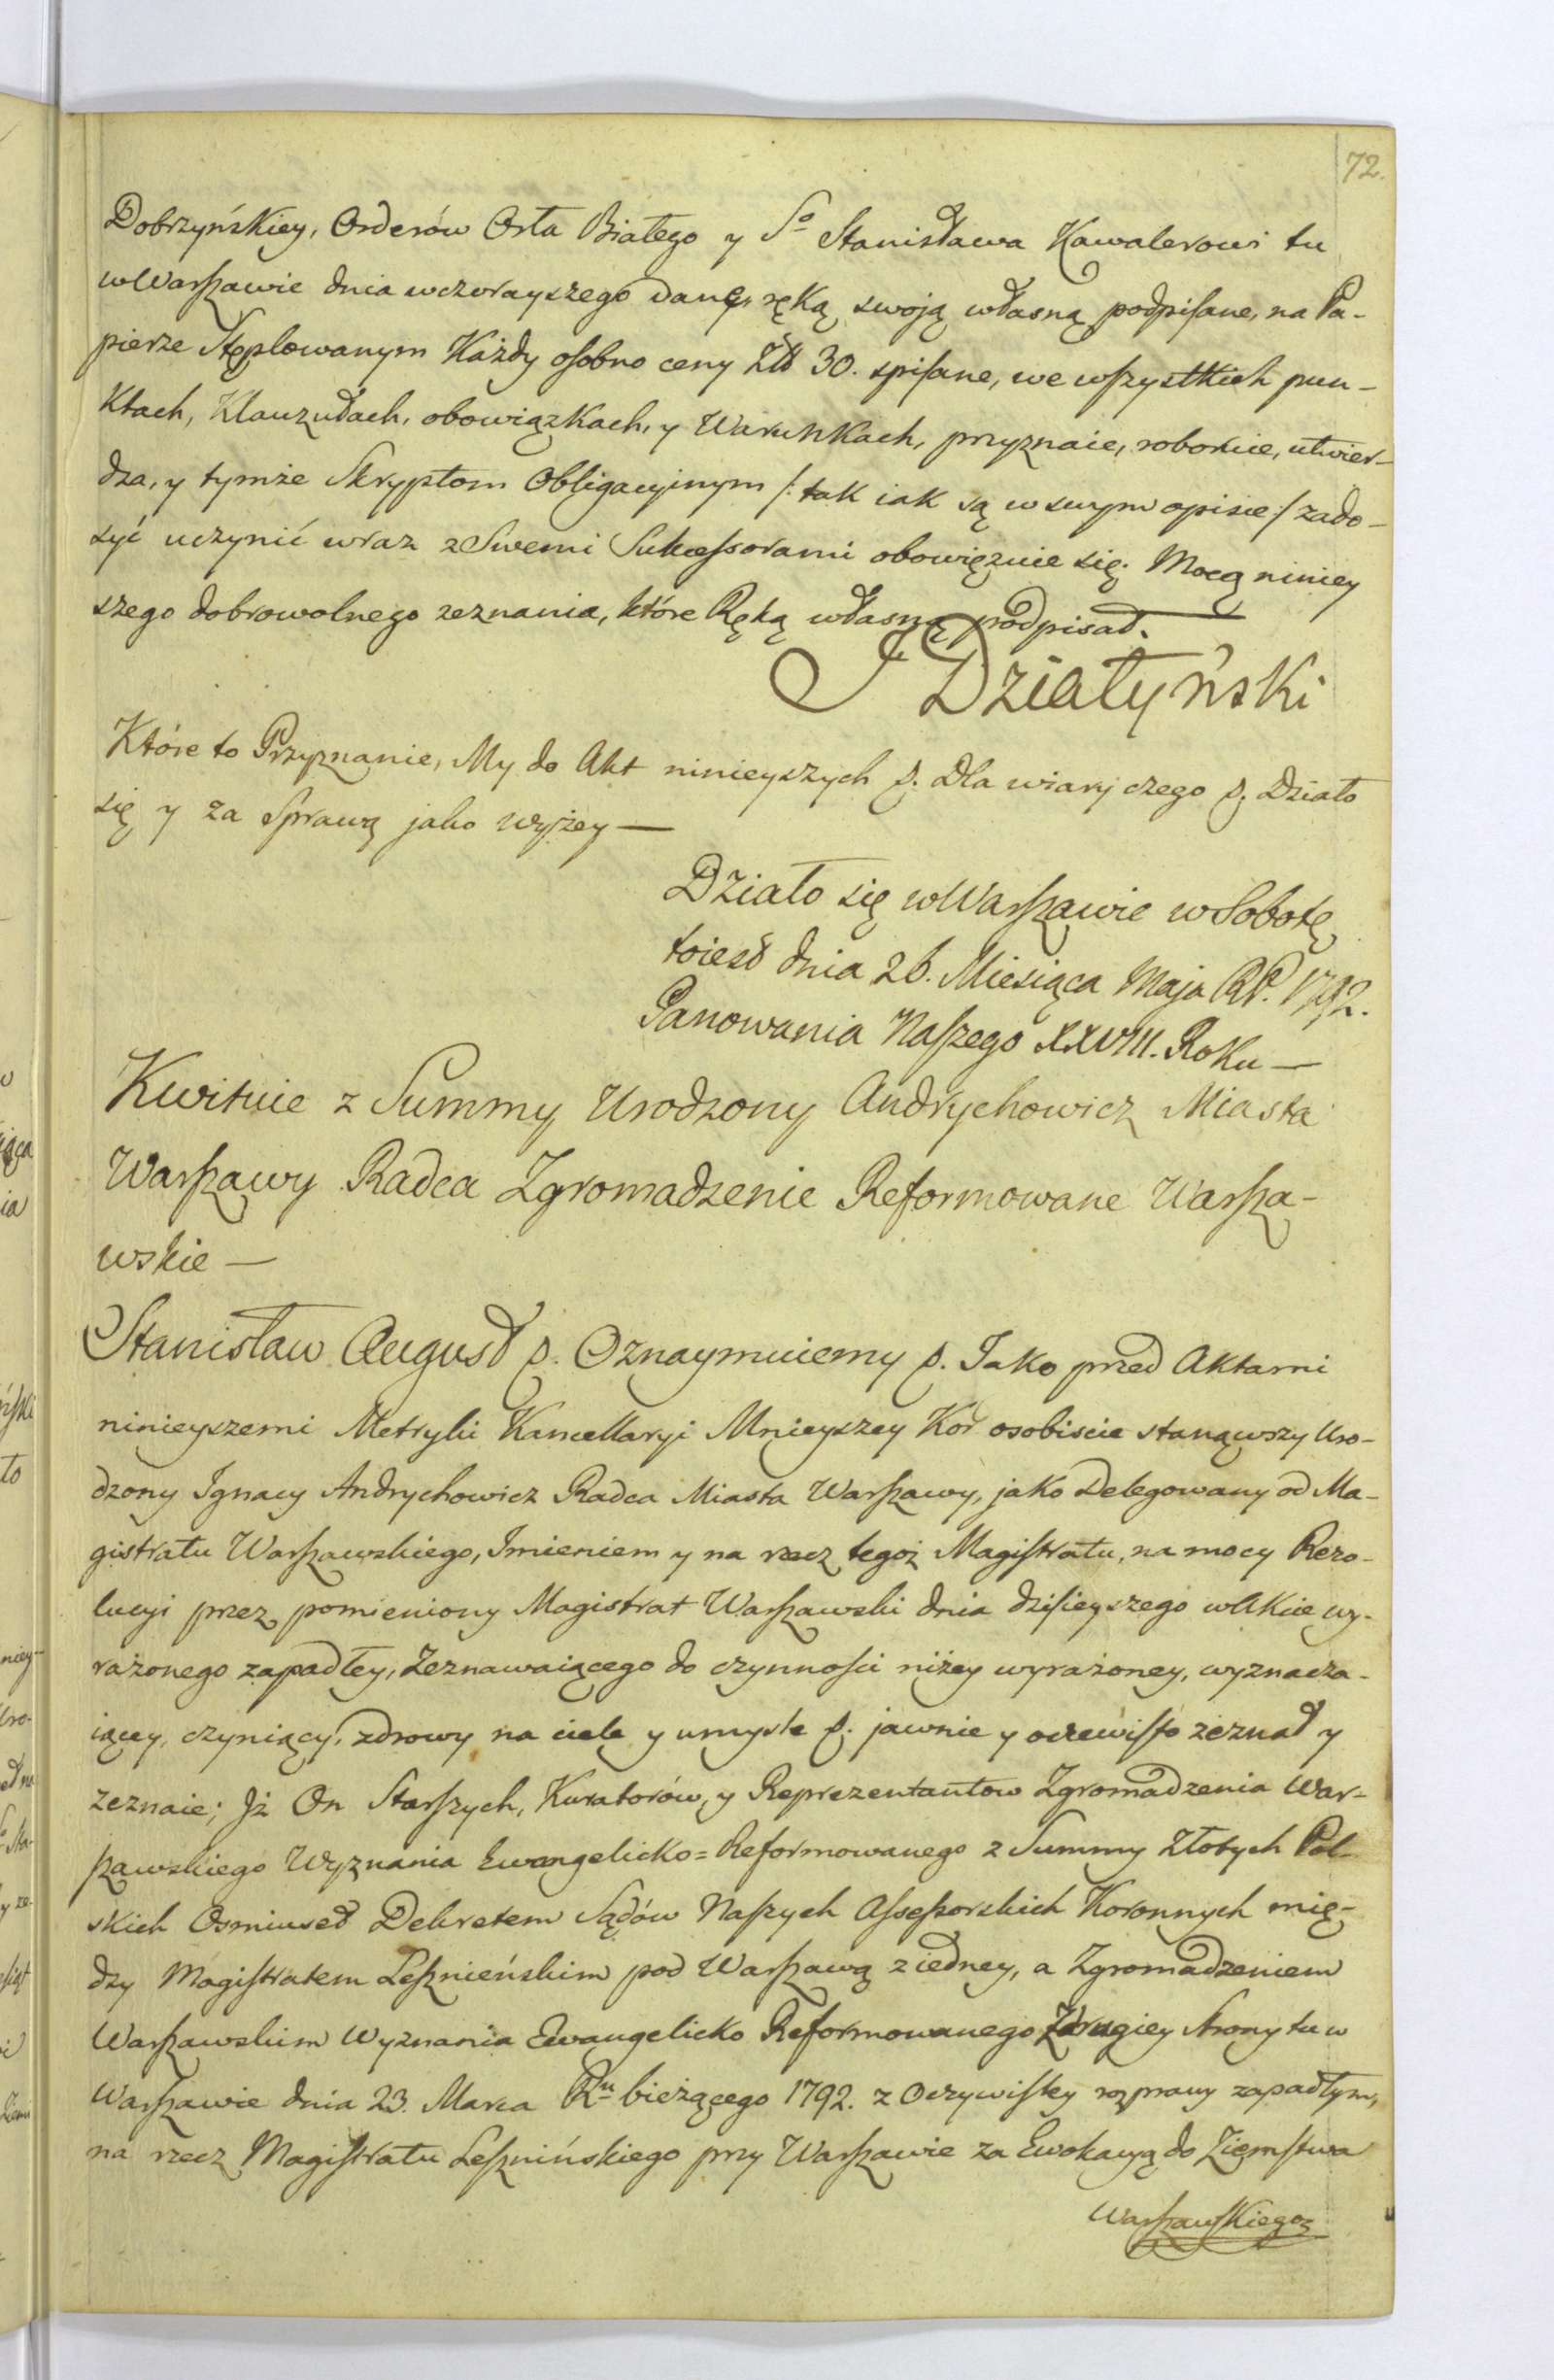 72.
Dobrzyńskiey, Orderów Orła Białego y S° Stanisława Kawalerowi tu
w Warszawie dnia wczorayszego dane, ręką swoją własną podpisane, na Pa-
pierze Stęplowanym Każdy osobno ceny Złł 30. spisane, we wszystkich pun-
ktach, Klauzułach, obowiązkach, y Warunkach, przyznaie, roboruie, utwier-
dza, y tymże Skryptom Obligacyinym /: tak iak są w swym opisie :/ zado-
syć uczynić wraz z Swemi Sukcessorami obowięzuie się. Mocą niniey
szego dobrowolnego zeznania, które Ręką własną podpisał.
J Działyński
Które to Przyznanie, My do Akt ninieyszych p. Dla wiary czego p. Działo
się y za Sprawą jako wyżey —
Działo się w Warszawie w Sobotę
toiest dnia 26. Miesiąca Maja RP. 1792.
Panowania Naszego XXVIII. Roku —
Kwituie z Summy Urodzony Andrychowicz Miasta
Warszawy Radca Zgromadzenie Reformowane Warsza-
wskie —
Stanisław August p. Oznaymuiemy p. Jako przed Aktami
ninieyszemi Metryki Kancellaryi Mnieyszey Kor osobiscie stanąwszy Uro-
dzony Ignacy Andrychowicz Radca Miasta Warszawy, jako Delegowany od Ma-
gistratu Warszawskiego, Imieniem y na rzecz tegoż Magistratu, na mocy Rezo-
lucyi przez pomieniony Magistrat Warszawski dnia dzisieyszego w Akcie wy-
rażonego zapadłey, Zeznawaiącego do czynności niżey wyrażoney, wyznacza-
iącey, czyniący, zdrowy na ciele y umysle p. jawnie y oczewisto zeznał y
zeznaie; Iż On Starszych, Kuratorów, y Reprezentantow Zgromadzenia War-
szawskiego Wyznania Ewangelicko=Reformowanego z Summy Złotych Pol-
skich Osmiuset Dekretem Sądów Naszych Assessorskich Koronnych mię-
dzy Magistratem Lesznieńskim pod Warszawą z iedney, a Zgromadzeniem
Warszawskim Wyznania Ewangelicko Reformowanego Zdrugiey Strony tu w
Warszawie dnia 23. Marca Ru bieżącego 1792. z Oczywistey rozprawy zapadłym,
na rzecz Magistratu Lesznińskiego przy Warszawie za Ewokacyą do Ziemstwa
Warszawskiego